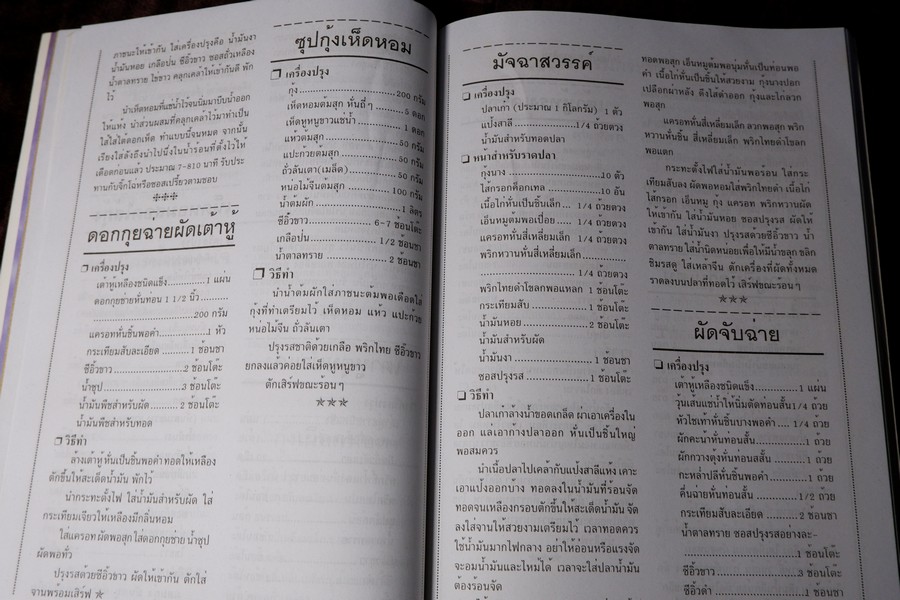 ภาชนะให้เข้ากัน ใส่เครื่องปรุงคือ น้ำมันงา
น้ำมันหอย เกลือป่น ซีอิ๊วขาว ซอสถั่วเหลือง
น้ำตาลทราย ไข่ขาว คลุกเคล้าให้เข้ากันดี พัก
ไว้
นำเห็ดหอมที่แช่น้ำไว้จนนิ่มมาบีบน้ำออก
ให้แห้ง นำส่วนผสมที่คลุกเคล้าไว้มาทำเป็น
ไส้ใส่ใต้ดอกเห็ด ทำแบบนี้จนหมด จากนั้น
เรียงใส่ลังถึงนำไปนึ่งในน้ำร้อนที่ตั้งไว้ให้
เดือดก่อนแล้ว ประมาณ 7-810 นาที รับประ
ทานกับจิ๊กโฉ่หรือซอสเปรี้ยวตามชอบ
ดอกกุยฉ่ายผัดเต้าหู้
❑ เครื่องปรุง
เต้าหู้เหลืองชนิดแข็ง..........1 แผ่น
ดอกกุยช่ายหั่นท่อน 1 1/2 นิ้ว..........
..............................200 กรัม
แครอทหั่นชิ้นพอคำ..............1 หัว
กระเทียมสับละเอียด..........1 ช้อนชา
ซีอิ๊วขาว......................2 ช้อนโต๊ะ
น้ำซุป..........................3 ช้อนโต๊ะ
น้ำมันพืชสำหรับผัด..........2 ช้อนโต๊ะ
น้ำมันพืชสำหรับทอด
❑ วิธีทำ
ล้างเต้าหู้ หั่นเป็นชิ้นพอคำ ทอดให้เหลือง
ตักขึ้นให้สะเด็ดน้ำมัน พักไว้
นำกระทะตั้งไฟ ใส่น้ำมันสำหรับผัด ใส่
กระเทียมเจียวให้เหลืองมีกลิ่นหอม
ใส่แครอท ผัดพอสุก ใส่ดอกกุยช่าย น้ำซุป
ผัดพอทั่ว
ปรุงรสด้วยซีอิ๊วขาว ผัดให้เข้ากัน ตักใส่
จานพร้อมเสิรฟ
ซุปกุ้งเห็ดหอม
❑ เครื่องปรุง
กุ้ง..............................200 กรัม
เห็ดหอมต้มสุก หั่นถี่ๆ..........5 ดอก
เห็ดหูหนูขาวแช่น้ำ..............1 ดอก
แห้วต้มสุก......................50 กรัม
แปะก้วยต้มสุก..................50 กรัม
ถั่วลันเตา(เมล็ด)................50 กรัม
หน่อไม้จีนต้มสุก................100 กรัม
น้ำต้มผัก..........................1 ลิตร
ซีอิ๊วขาว......................6-7 ช้อนโต๊ะ
เกลือป่น......................1/2 ช้อนชา
น้ำตาลทราย..................2 ช้อนชา
❑ วิธีทำ
นำน้ำต้มผักใส่ภาชนะต้มพอเดือดใส่
กุ้งที่ทำเตรียมไว้ เห็ดหอม แห้ว แปะก้วย
หน่อไม้จีน ถั่วลันเตา
ปรุงรสชาติด้วยเกลือ พริกไทย ซีอิ๊วขาว
ยกลงแล้วค่อยใส่เห็ดหูหนูขาว
ตักเสิร์ฟขณะร้อน ๆ
มัจฉาสวรรค์
❑ เครื่องปรุง
ปลาเก๋า (ประมาณ 1 กิโลกรัม) 1 ตัว
แป้งสาลี......................1/4 ถ้วยตวง
น้ำมันสำหรับทอดปลา
❑ หน้าสำหรับราดปลา
กุ้งนาง..........................10 ตัว
ไส้กรอกค็อกเทล................10 อัน
เนื้อไก่หั่นเป็นชิ้นเล็ก.... 1/4 ถ้วยตวง
เอ็นหมูต้มพอเปื่อย...... 1/4 ถ้วยตวง
แครอทหั่นสี่เหลี่ยมเล็ก 1/4 ถ้วยตวง
พริกหวานหั่นสี่เหลี่ยมเล็ก..............
......................... 1/4 ถ้วยตวง
พริกไทยดำโขลกพอแหลก 1 ช้อนโต๊ะ
กระเทียมสับ................ 1 ช้อนโต๊ะ
น้ำมันหอย..................2 ช้อนโต๊ะ
น้ำมันสำหรับผัด
น้ำมันงา...................... 1 ช้อนชา
ซอสปรุงรส.................. 1 ช้อนโต๊ะ
❑ วิธีทำ
ปลาเก๋าล้างน้ำขอดเกล็ด ผ่าเอาเครื่องใน
ออก แล่เอาก้างปลาออก หั่นเป็นชิ้นใหญ่
พอสมควร
นำเนื้อปลาไปเคล้ากับแป้งสาลีแห้ง เคาะ
เอาแป้งออกบ้าง ทอดลงในน้ำมันที่ร้อนจัด
ทอดจนเหลืองกรอบตักขึ้นให้สะเด็ดน้ำมัน จัด
ลงใส่จานให้สวยงามเตรียมไว้ เวลาทอดควร
ใช้น้ำมันมากไฟกลาง อย่าให้อ่อนหรือแรงจัด
จะอมน้ำมันและไหม้ได้ เวลาจะใส่ปลาน้ำมัน
ต้องร้อนจัด
ทอดพอสุก เอ็นหมูต้มพอนุ่มหั่นเป็นท่อนพอ
คำ เนื้อไก่หั่นเป็นชิ้นให้สวยงาม กุ้งนางปอก
เปลือกผ่าหลัง ดึงไส้ดำออก กุ้งและไก่ลวก
พอสุก
แครอทหั่นสี่เหลี่ยมเล็ก ลวกพอสุก พริก
หวานหั่นชิ้น สี่เหลี่ยมเล็ก พริกไทยดำโขลก
พอแตก
กระทะตั้งไฟใส่น้ำมันพอร้อน ใส่กระ
เทียมสับลง ผัดพอหอมใส่พริกไทยดำ เนื้อไก่
ไส้กรอก เอ็นหมู กุ้ง แครอท พริกหวานผัด
ให้เข้ากัน ใส่น้ำมันหอย ซอสปรุงรส ผัดให้
เข้ากัน ใส่น้ำมันงา ปรุงรสด้วยซีอิ๊วขาว น้ำ
ตาลทราย ใส่น้ำนิดหน่อยเพื่อให้มีน้ำขลุก ขลิก
ชิมรสดู ใส่เหล้าจีน ตักเครื่องที่ผัดทั้งหมด
ราดลงบนปลาที่ทอดไว้ เสิร์ฟขณะร้อน ๆ
ผัดจับฉ่าย
❑ เครื่องปรุง
เต้าหู้เหลืองชนิดแข็ง............1 แผ่น
วุ้นเส้นแช่น้ำให้นิ่มตัดท่อนสั้น1/4 ถ้วย
หัวไชเท้าหั่นชิ้นบางพอคำ.... 1/4 ถ้วย
ผักคะน้าหั่นท่อนสั้น..............1 ถ้วย
ผักกวางตุ้งหั่นท่อนสสั้น..........1 ถ้วย
กะหล่ำปลีหั่นชิ้นพอคำ..........1 ถ้วย
คึ่นฉ่ายหั่นท่อนสั้น............1/2 ถ้วย
กระเทียมสับละเอียด..........2 ช้อนชา
น้ำตาลทราย ซอสปรุงรสอย่างละ-
..............................1 ช้อนโต๊ะ
ซีอิ๊วขาว......................3 ช้อนโต๊ะ
ซีอิ๊วดำ..........................1 ช้อนชา